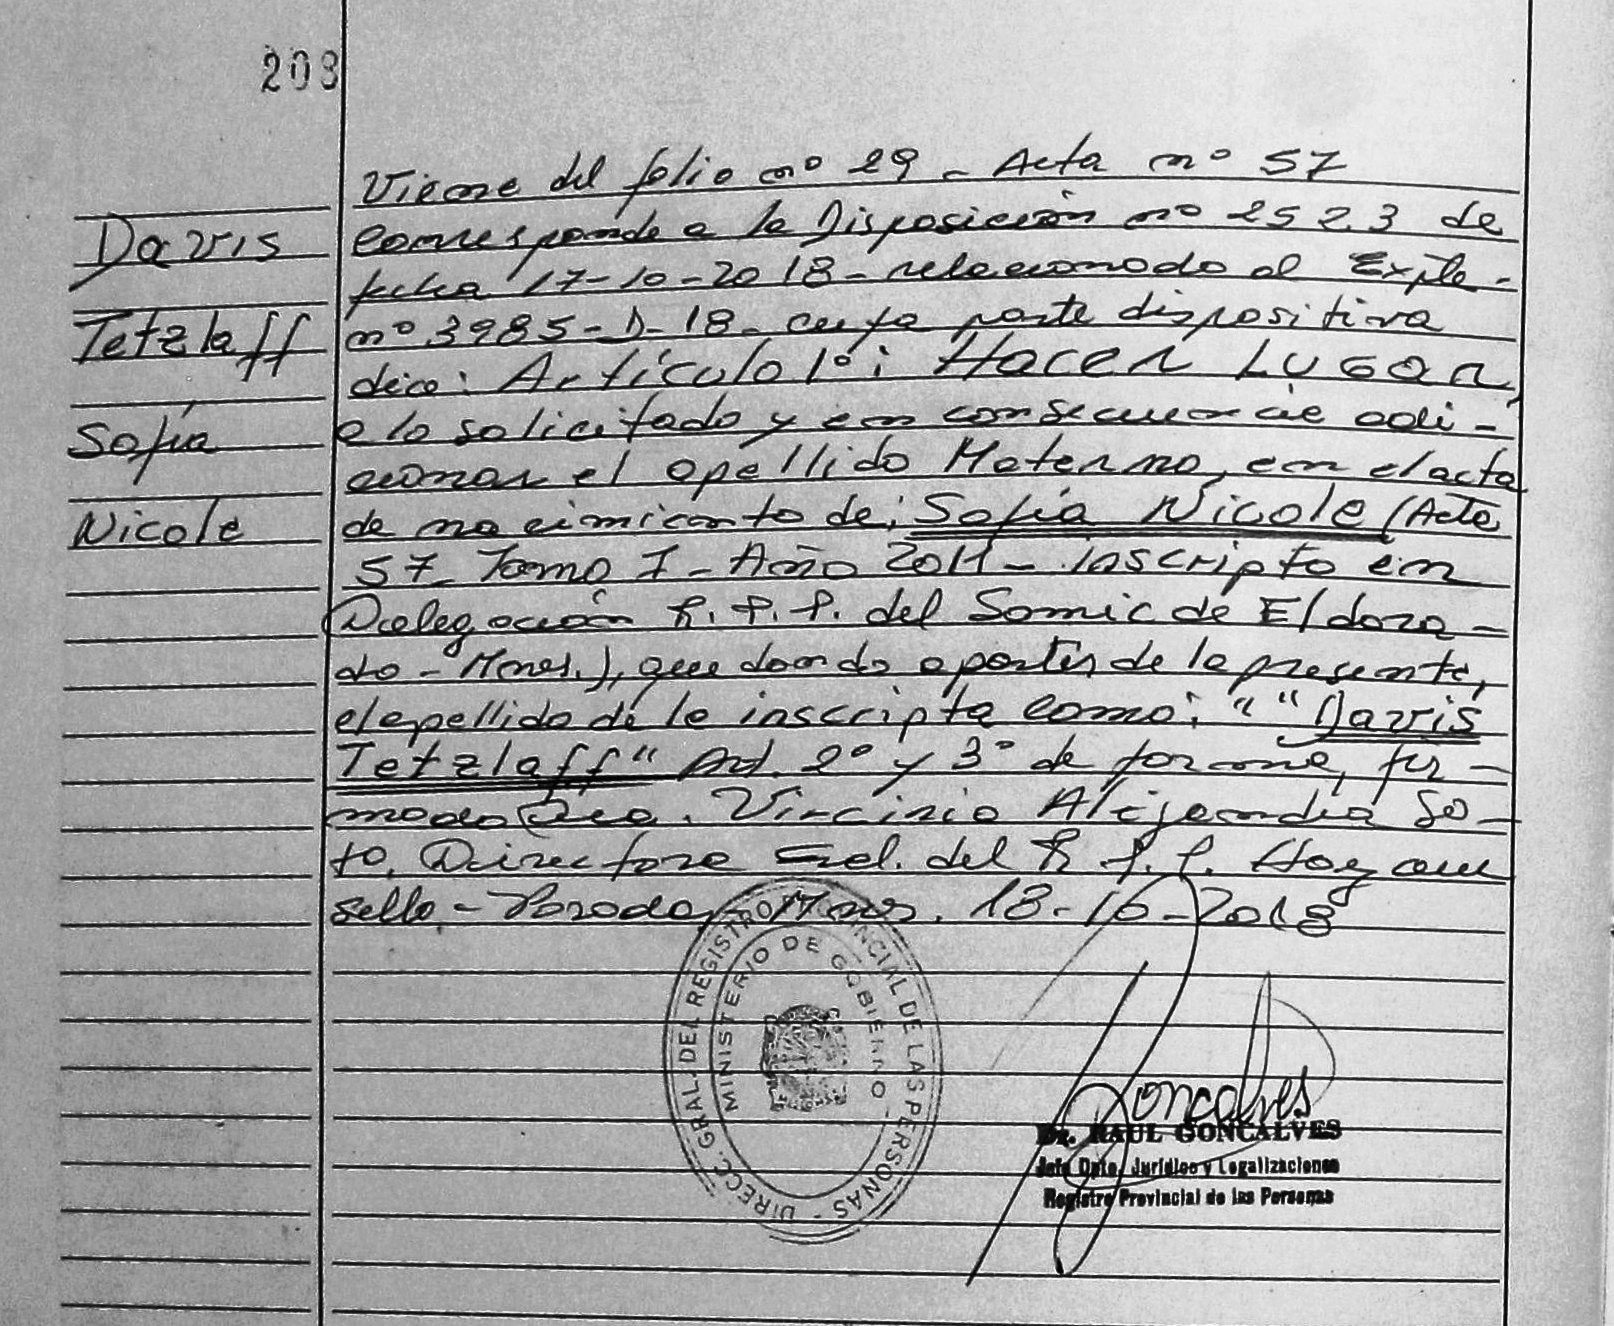 208
Davis
Tetzlaff
Sofía
Nicole
Viene del folio nº 29 - Acta nº 57
Corresponde a la Disposición nº 2523 de
fecha 17-10-2018 - relacionado al Expte -
nº 3985-D-18 - cuya parte dispositiva
dice: Artículo 1º: HACER LUGAR
a lo solicitado y en consecuencia adi-
cionar el apellido Materno, en el acta
de nacimiento de: Sofía Nicole (Acta
57 - Tomo I - Año 2011 - inscripto en
Delegación R. P. P. del Samic de Eldora-
do - Mnes.), quedando a partir de la presente,
el apellido de la inscripta como: ““Davis
Tetzlaff“ Art. 2º y 3º de forma, fir-
mado Dra. Virginia Alejandra So-
to, Directora Gral. del R. P. P. Hay un
sello - Posadas, Mnes. 18-10-2018
DIRECC. GRAL. DEL REGISTRO PROVINCIAL DE LAS PERSONAS -
MINISTERIO DE GOBIERNO -
Goncalves
Dr. RAUL GONCALVES
Jefe Dpto. Jurídico y Legalizaciones
Registro Provincial de las Personas